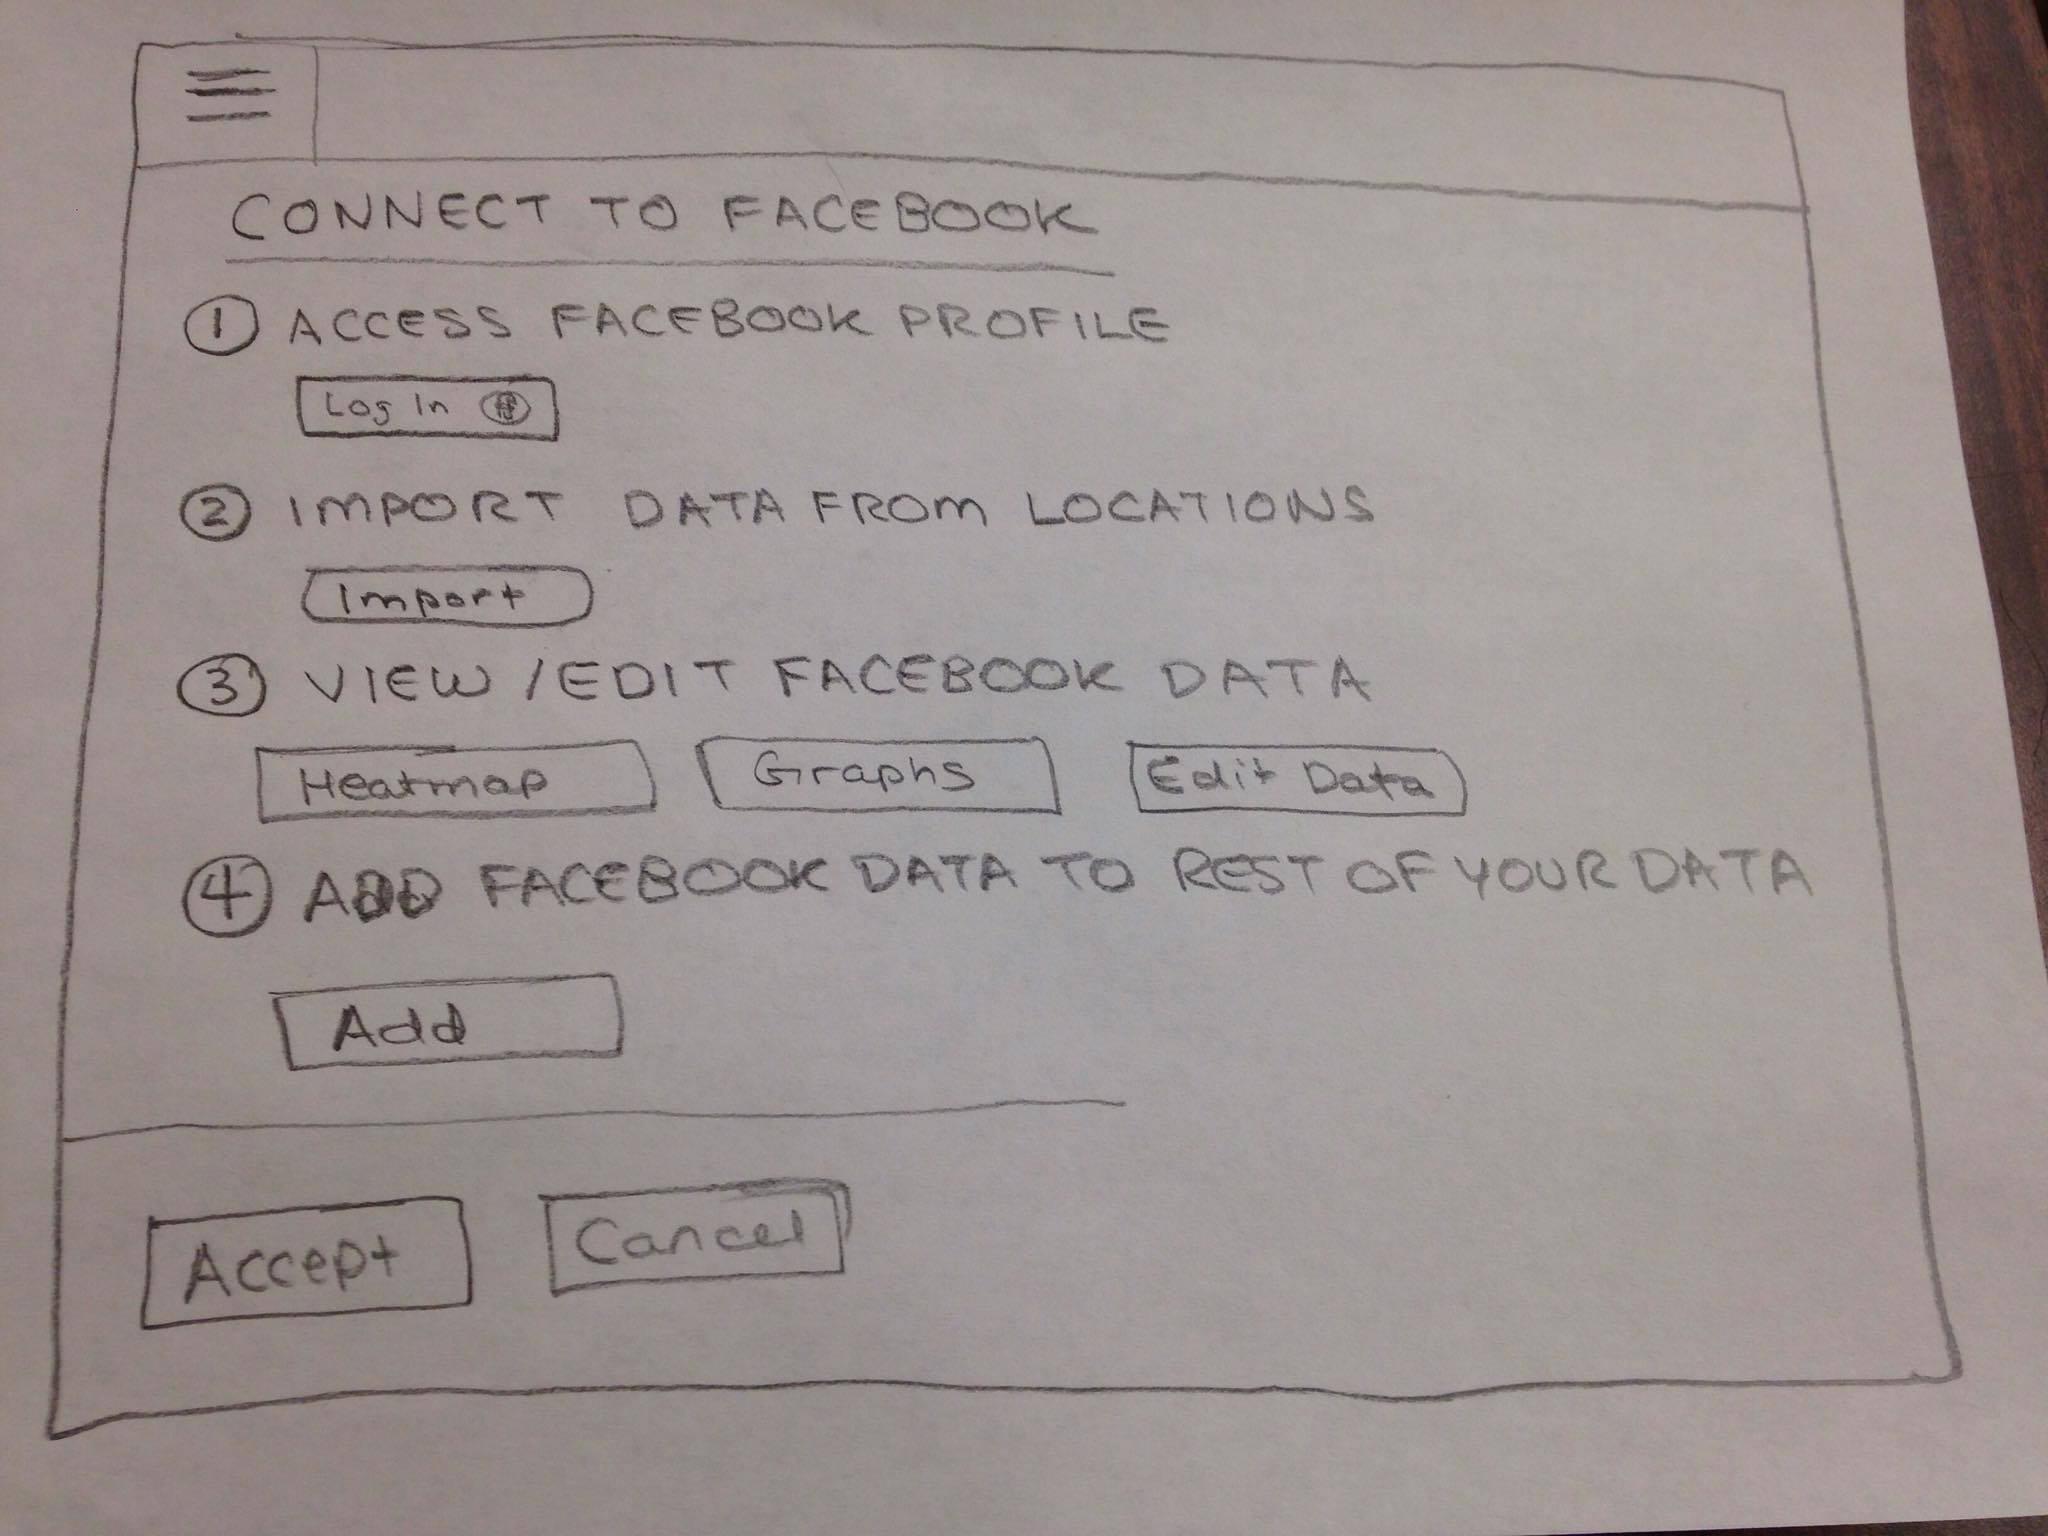 CONNECT TO FACEBOOK
1 ACCESS FACEBOOK PROFILE
Log In
2 IMPORT DATA FROM LOCATIONS
Import
3 VIEW / EDIT FACEBOOK DATA
Heatmap Graphs Edit Data
4 ADD FACEBOOK DATA TO REST OF YOUR DATA
Add
Accept Cancel